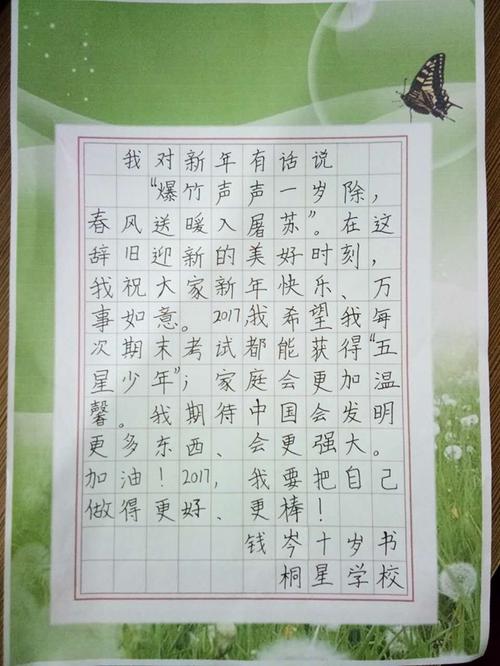 我对新年有话说
“爆竹声声一岁除，
春风送暖入屠苏”。在这
辞旧迎新的美好时刻，
我祝大家新年快乐、万
事如意。2017，我希望我每
次期末考试都能获得“五
星少年”；家庭会更加温
馨。我期待中国会发明
更多东西、会更强大。
加油！2017，我要把自己
做得更好、更棒！
钱岑十岁书
桐星学校